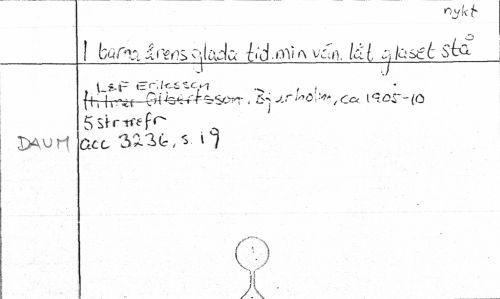 nykt
I barnaårens glada tid. min vän. låt glaset stå
Leif Eriksson
Hilmer Gilbertsson, Bjurholm, ca 1905-10
5 str + refr
DAUM acc 3236, s. 19